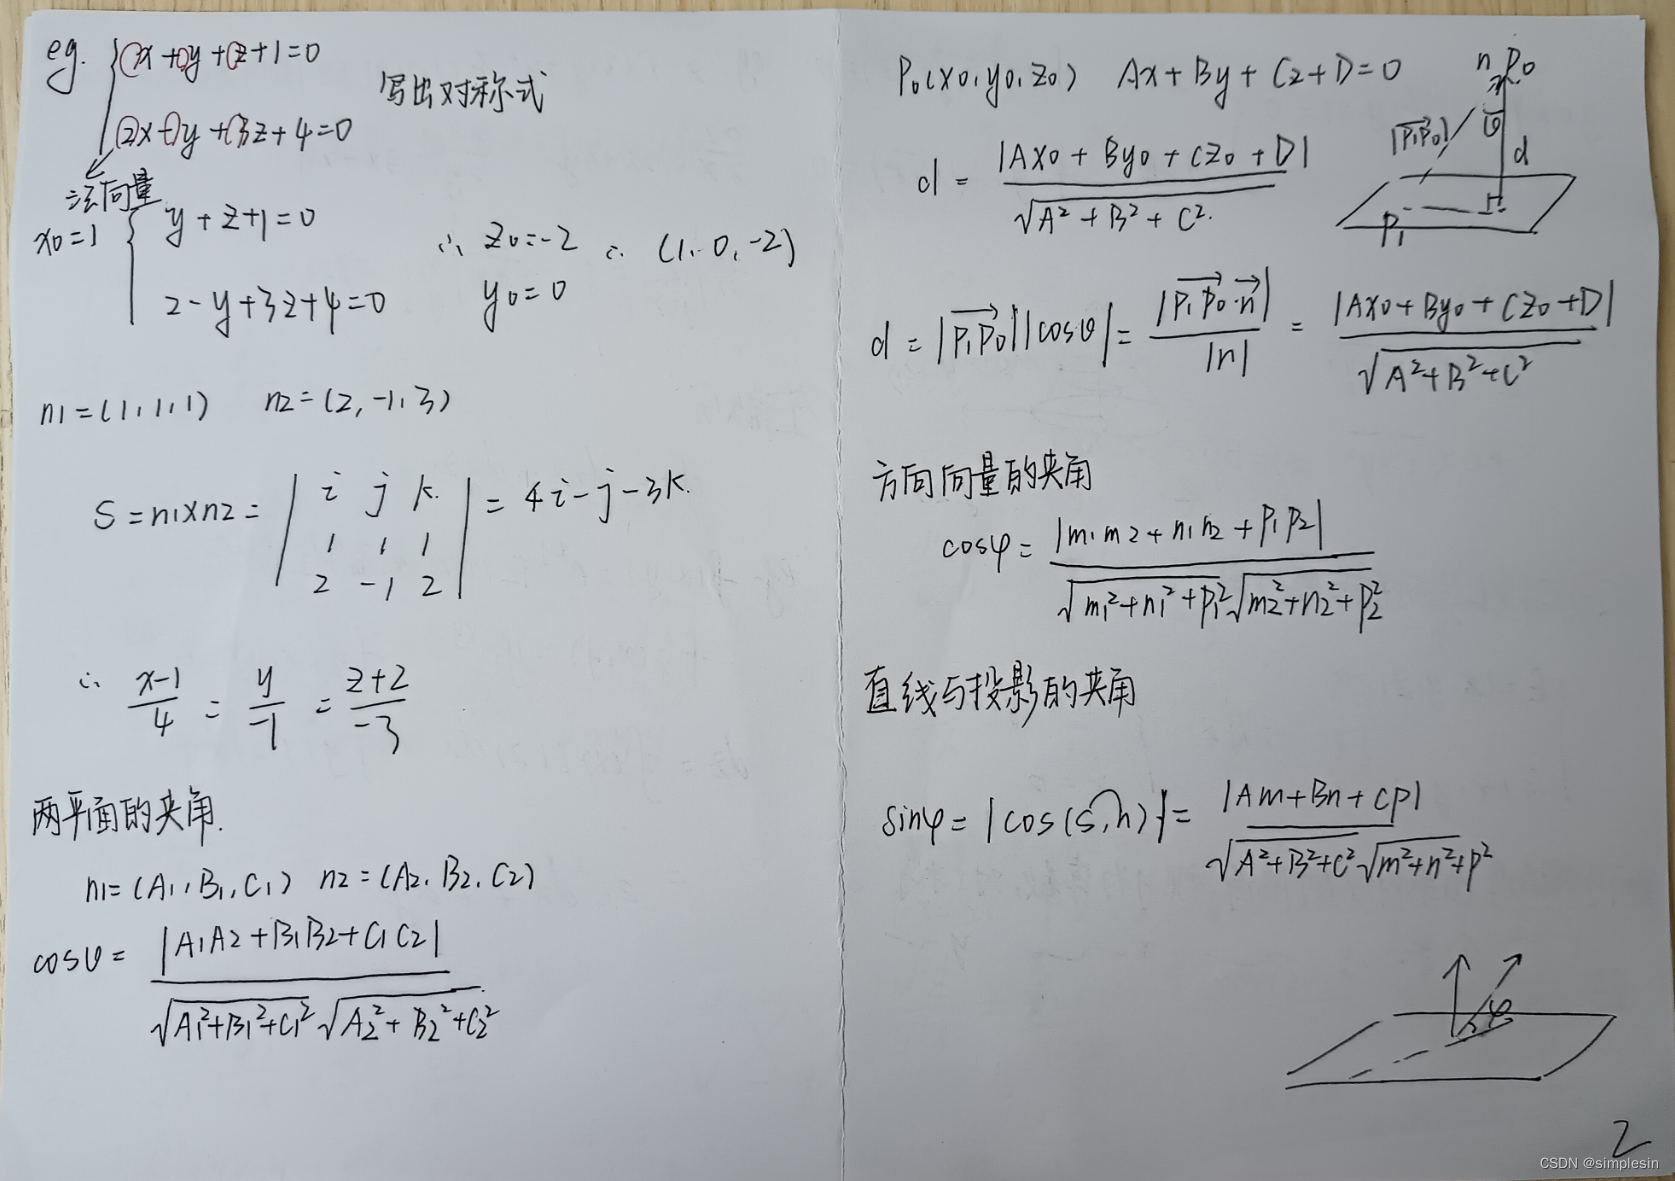 eg. { x + y + z + 1 = 0
写出对称式
2x - y + 3z + 4 = 0
法向量
x0 = 1 { y + z + 1 = 0
2 - y + 3z + 4 = 0
∴ z0 = -2 ∴ (1, 0, -2)
y0 = 0
n1 = (1, 1, 1) n2 = (2, -1, 3)
S = n1 × n2 = | i j k | = 4i - j - 3k
1 1 1
2 -1 2
∴ (x-1)/4 = y/-1 = (z+2)/-3
两平面的夹角.
n1 = (A1, B1, C1) n2 = (A2, B2, C2)
cosθ = |A1A2 + B1B2 + C1C2| / √(A1²+B1²+C1²) √(A2²+B2²+C2²)
P0(x0, y0, z0) Ax + By + Cz + D = 0
d = |Ax0 + By0 + Cz0 + D| / √(A² + B² + C²)
n P0
|P1P0| θ
d
P1
d = |P1P0||cosθ| = |P1P0·n| / |n| = |Ax0 + By0 + Cz0 + D| / √(A²+B²+C²)
方向向量的夹角
cosφ = |m1m2 + n1n2 + p1p2| / √(m1²+n1²+p1²) √(m2²+n2²+p2²)
直线与投影的夹角
sinφ = |cos(s,n)| = |Am+Bn+Cp| / √(A²+B²+C²) √(m²+n²+p²)
φ
2
CSDN @simplesin